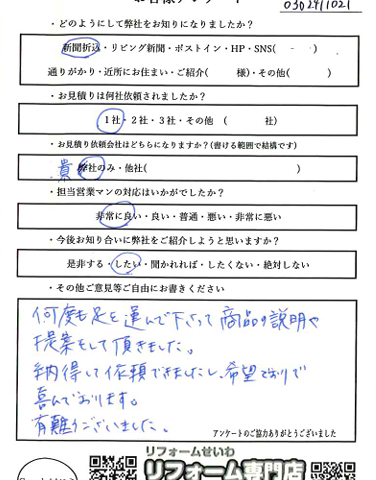 0302411021
・どのようにして弊社をお知りになりましたか？
新聞折込・リビング新聞・ポストイン・HP・SNS( - )
通りがかり・近所にお住まい・ご紹介( 様)・その他( )
・お見積りは何社依頼されましたか？
1社・2社・3社・その他 ( 社)
・お見積り依頼会社はどちらになりますか？(書ける範囲で結構です)
貴 弊社のみ・他社( )
・担当営業マンの対応はいかがでしたか？
非常に良い・良い・普通・悪い・非常に悪い
・今後お知り合いに弊社をご紹介しようと思いますか？
是非する・したい・聞かれれば・したくない・絶対しない
・その他ご意見等ご自由にお書きください
何度も足を運んで下さって商品の説明や
提案をして頂きました。
納得して依頼できましたし、希望どおりで
喜んでおります。
有難うございました。
アンケートのご協力ありがとうございました
リフォームせいわ
リフォーム専門店